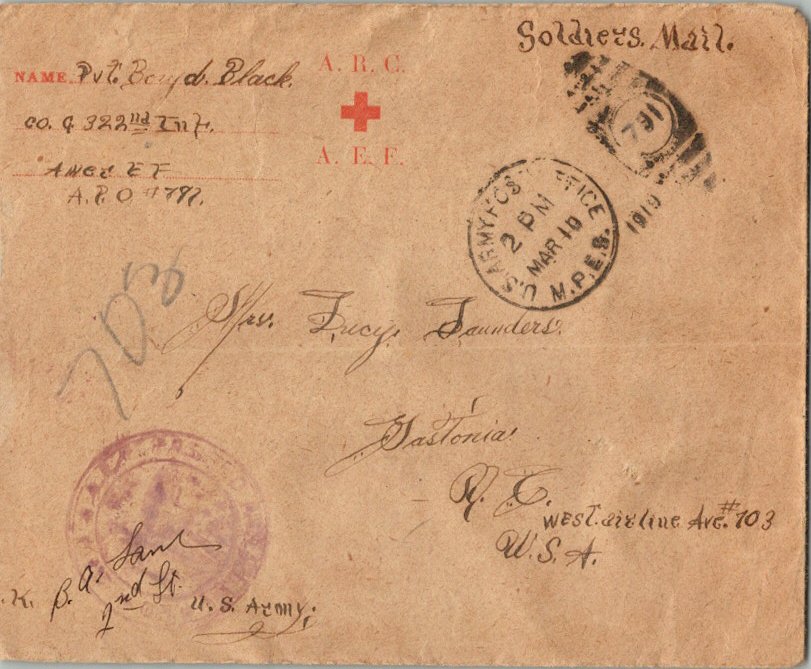 Soldiers. Mail.
NAME. Pvt. Boyd. Black.
A. R. C.
Co. G 322nd Inf.
A. E. F.
Amer E F
A. P. O # 791.
791
1919
U.S. ARMY POST OFFICE
2 PM
MAR 10
M.P.E.S.
703
Mrs. Lucy. Saunders.
Gastonia
N. C.
West. airline Ave. # 703
U. S. A.
O.K. B. A.
2nd Lt.
U. S. Army.